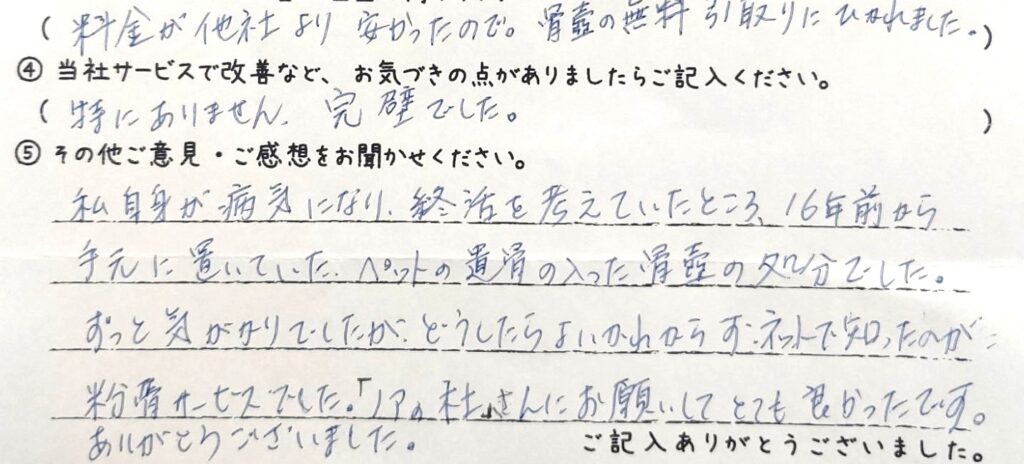 ( 料金が他社より安かったので。骨壺の無料引取りにひかれました。)
④ 当社サービスで改善など、お気づきの点がありましたらご記入ください。
( 特にありません、完璧でした。 )
⑤ その他ご意見・ご感想をお聞かせください。
私自身が病気になり、終活を考えていたところ、16年前から
手元に置いていた、ペットの遺骨の入った骨壺の処分でした。
ずっと気がかりでしたが、どうしたらよいかわからず、ネットで知ったのが
粉骨サービスでした。「ノアの杜」さんにお願いしてとても良かったです。
ありがとうございました。
ご記入ありがとうございました。